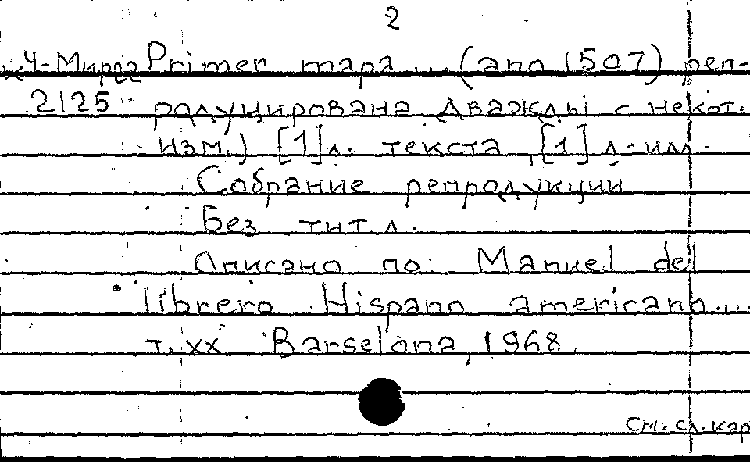 2
Ч-Мира Primer mapa ... (ano 1507) реп-
2125 родуцирована дважды с некот.
изм.) [1] л. текста, [1] л. илл.
Собрание репродукции
Без тит. л.
Описано по: Manuel del
librero Hispano americano...
т. XX Barselona, 1968.
См. сл. кар